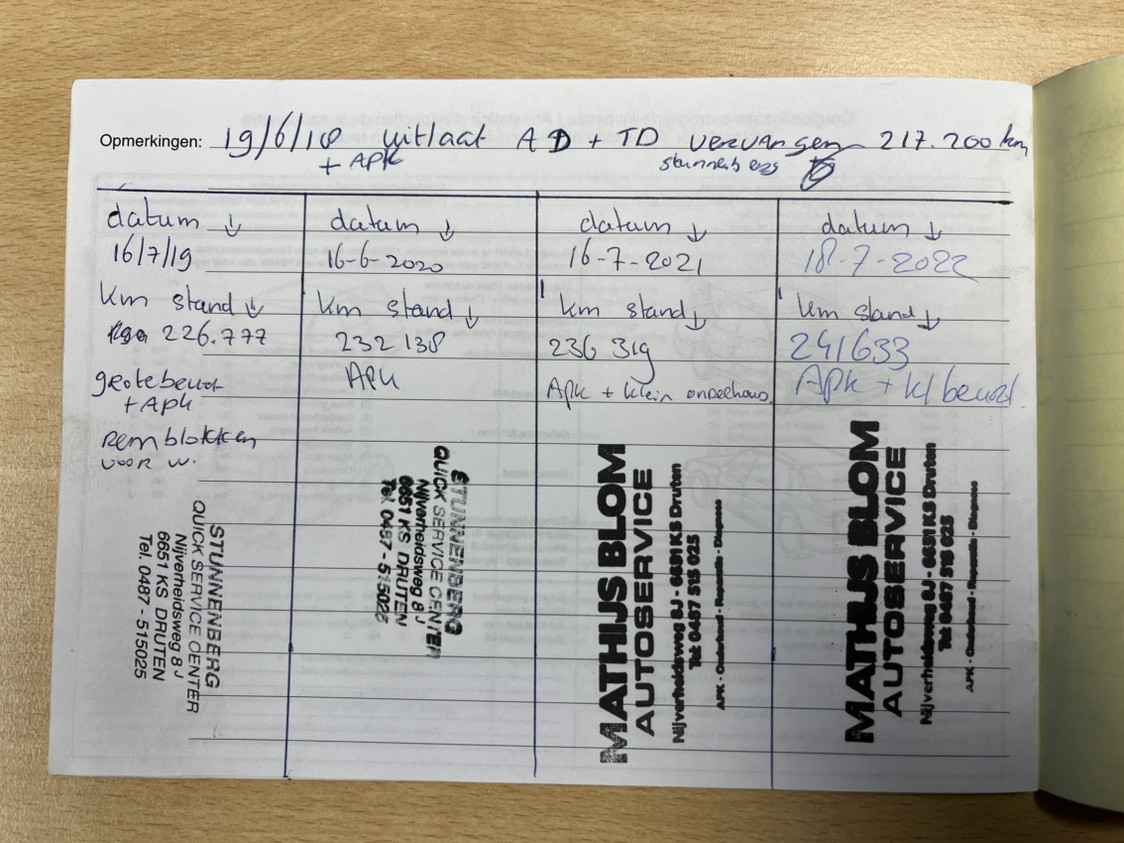 Opmerkingen: 19/6/18 uitlaat AD + TD vervangen 217.200 km
+ APK stunnenberg
datum ↓
16/7/19
km stand ↓
226.777
grote beurt
+ Apk
remblokken
voor w.
STUNNENBERG
QUICK SERVICE CENTER
Nijverheidsweg 8 J
6651 KS DRUTEN
Tel. 0487 - 515025
datum ↓
16-6-2020
km stand ↓
232 138
APK
STUNNENBERG
QUICK SERVICE CENTER
Nijverheidsweg 8 J
6651 KS DRUTEN
Tel. 0487 - 515025
datum ↓
16-7-2021
km stand ↓
236 319
Apk + klein onderhoud
MATHIJS BLOM
AUTOSERVICE
Nijverheidsweg 8J - 6651 KS Druten
Tel: 0487 515 025
APK - Onderhoud - Reparatie - Diagnose
datum ↓
18-7-2022
km stand ↓
241633
Apk + kl beurt.
MATHIJS BLOM
AUTOSERVICE
Nijverheidsweg 8J - 6651 KS Druten
Tel: 0487 515 025
APK - Onderhoud - Reparatie - Diagnose